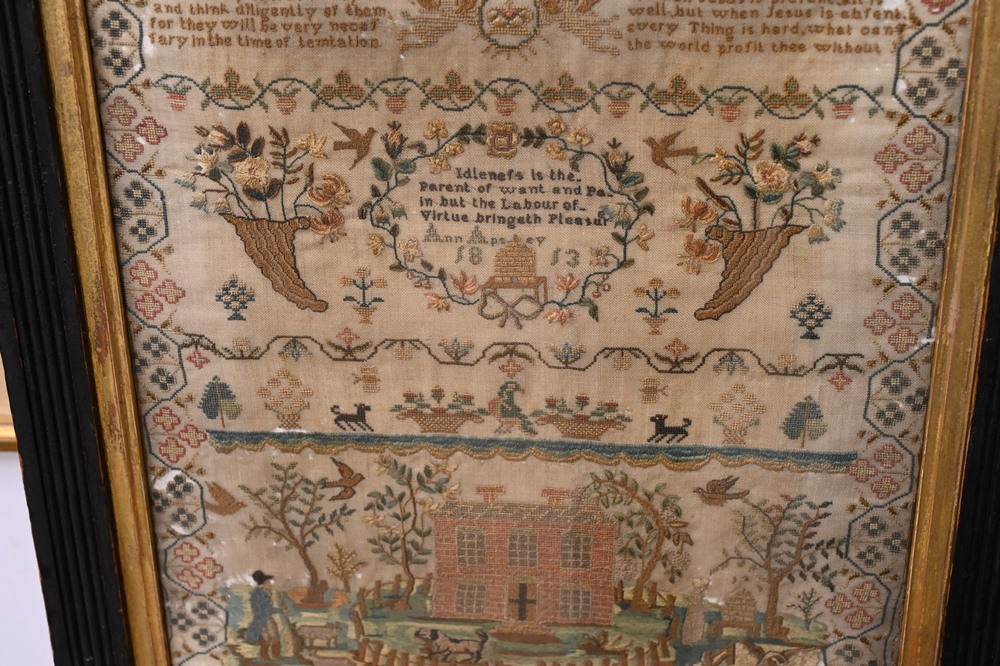 and think diligently of them
for they will be very necef
fary in the time of temtation
well, but when Jesus is absent
every Thing is hard, what can
the world profit thee without
Idlenefs is the
Parent of want and Pa
in but the Labour of
Virtue bringeth Pleasur
Ann Apsley
18 13